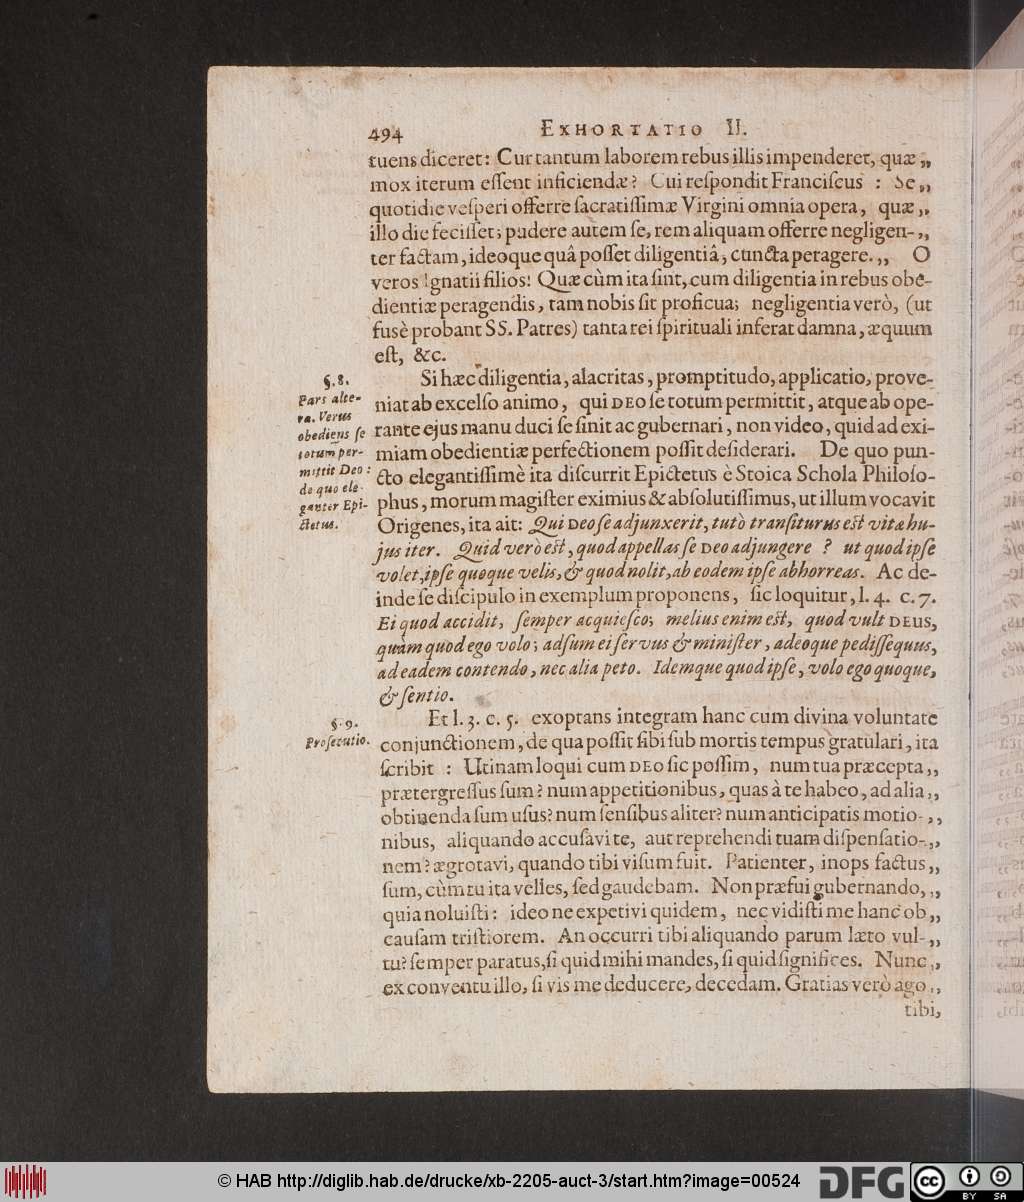 494 EXHORTATIO II.
tuens diceret: Cur tantum laborem rebus illis impenderet, quæ „
mox iterum eſſent inficiendæ? Cui reſpondit Franciſcus : Se „
quotidie veſperi offerre ſacratiſſimæ Virgini omnia opera, quæ „
illo die feciſſet; pudere autem ſe, rem aliquam offerre negligen- „
ter factam, ideoque quâ poſſet diligentiâ, cuncta peragere. „ O
veros Ignatii filios! Quæ cùm ita ſint, cum diligentia in rebus obe-
dientiæ peragendis, tam nobis ſit proficua; negligentia verò, (ut
fusè probant SS. Patres) tanta rei ſpirituali inferat damna, æquum
eſt, &c.
§. 8.
Pars alte-
ra. Verus
obediens ſe
totum per-
mittit Deo:
de quo ele-
ganter Epi-
ctetus.
Si hæc diligentia, alacritas, promptitudo, applicatio, prove-
niat ab excelſo animo, qui DEO ſe totum permittit, atque ab ope-
rante ejus manu duci ſe ſinit ac gubernari, non video, quid ad exi-
miam obedientiæ perfectionem poſſit deſiderari. De quo pun-
cto elegantiſſimè ita diſcurrit Epictetus è Stoica Schola Philoſo-
phus, morum magiſter eximius & abſolutiſſimus, ut illum vocavit
Origenes, ita ait: Qui DEO ſe adjunxerit, tutò tranſiturus eſt vitæ hu-
jus iter. Quid verò eſt, quod appellas ſe DEO adjungere ? ut quod ipſe
volet, ipſe quoque velis, & quod nolit, ab eodem ipſe abhorreas. Ac de-
inde ſe diſcipulo in exemplum proponens, ſic loquitur, l. 4. c. 7.
Ei quod accidit, ſemper acquieſco; melius enim eſt, quod vult DEUS,
quàm quod ego volo; adſum ei ſervus & miniſter, adeoque pediſſequus,
ad eadem contendo, nec alia peto. Idemque quod ipſe, volo ego quoque,
& ſentio.
§. 9.
Proſecutio.
Et l. 3. c. 5. exoptans integram hanc cum divina voluntate
conjunctionem, de qua poſſit ſibi ſub mortis tempus gratulari, ita
ſcribit : Utinam loqui cum DEO ſic poſſim, num tua præcepta „
prætergreſſus ſum? num appetitionibus, quas à te habeo, ad alia „
obtinenda ſum uſus? num ſenſibus aliter? num anticipatis motio- „
nibus, aliquando accuſavi te, aut reprehendi tuam diſpenſatio- „
nem? ægrotavi, quando tibi viſum fuit. Patienter, inops factus „
ſum, cùm tu ita velles, ſed gaudebam. Non præfui gubernando, „
quia noluiſti: ideo ne expetivi quidem, nec vidiſti me hanc ob „
cauſam triſtiorem. An occurri tibi aliquando parum læto vul- „
tu? ſemper paratus, ſi quid mihi mandes, ſi quid ſignifices. Nunc „
ex conventu illo, ſi vis me deducere, decedam. Gratias verò ago „
tibi,
© HAB http://diglib.hab.de/drucke/xb-2205-auct-3/start.htm?image=00524
DFG
cc BY SA